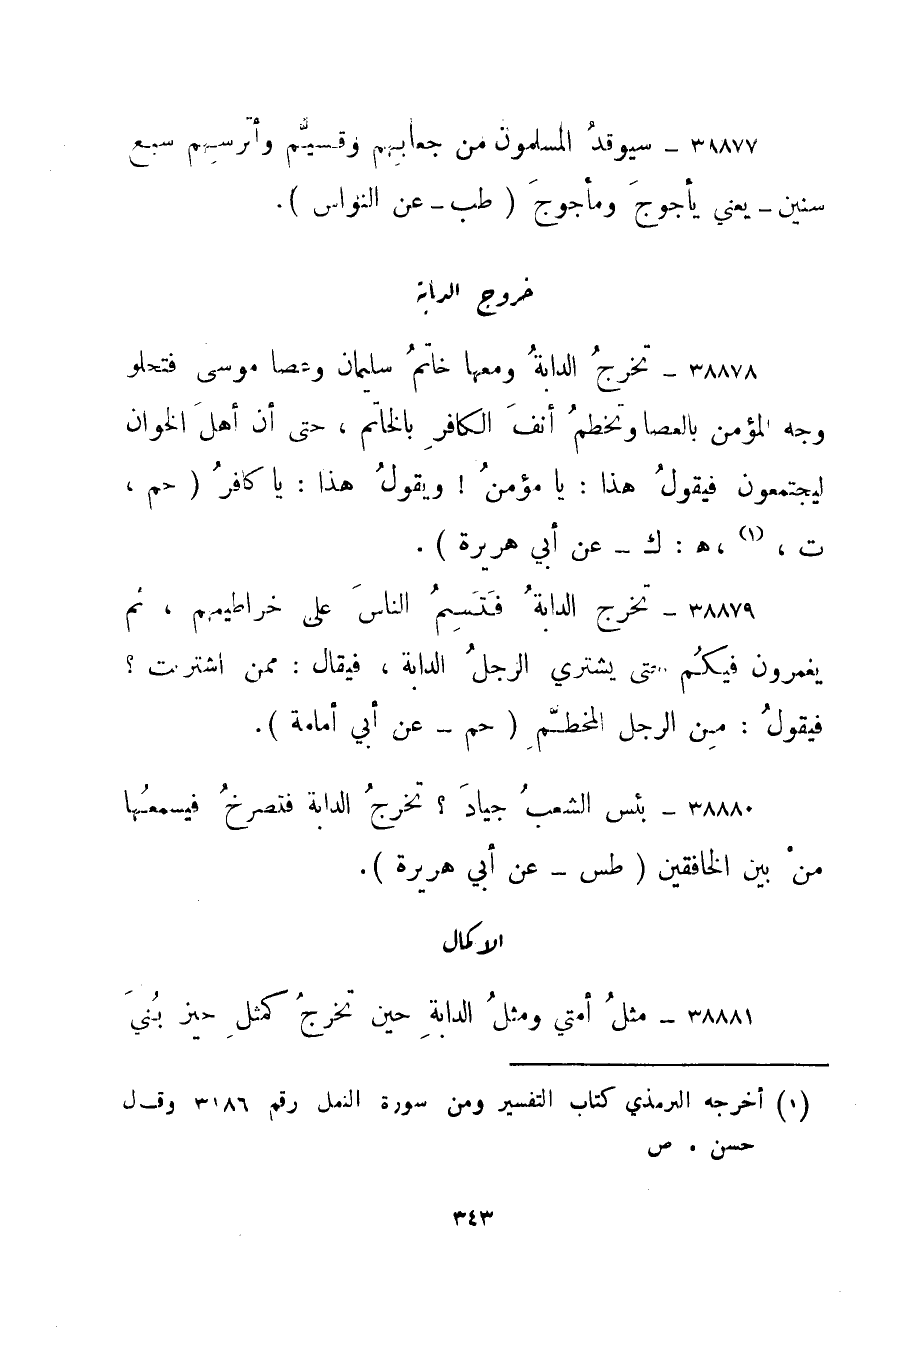 ٣٨٨٧٧ ـ سيوقدُ المسلمونَ من جعابِهم وقسيِّهم وأترسِهم سبع
سنين ـ يعني يأجوجَ ومأجوجَ ( طب ـ عن النواس ) .
خروج الدابة
٣٨٨٧٨ ـ تخرجُ الدابةُ ومعها خاتمُ سليمان وعصا موسى فتجلو
وجه المؤمن بالعصا وتخطمُ أنفَ الكافرِ بالخاتم ، حتى أن أهلَ الخوان
ليجتمعون فيقولُ هذا : يا مؤمنُ ! ويقولُ هذا : يا كافرُ ( حم ،
ت ، (١) ،ه : ك ـ عن أبي هريرة ) .
٣٨٨٧٩ ـ تخرج الدابةُ فَتَسِمُ الناسَ على خراطيمهم ، ثم
يغمرون فيكُم حتى يشتري الرجلُ الدابة ، فيقال : ممن اشتريت ؟
فيقولُ : مِن الرجل المخطَّمِ ( حم ـ عن أبي أمامة ) .
٣٨٨٨٠ ـ بئس الشعبُ جيادَ ؟ تخرجُ الدابة فتصرخُ فيسمعُها
منْ بين الخافقين ( طس ـ عن أبي هريرة ) .
الاكمال
٣٨٨٨١ ـ مثلُ أمتي ومثلُ الدابةِ حين تخرجُ كمثلِ حيز بُنيَ
(١) أخرجه الترمذي كتاب التفسير ومن سورة النمل رقم ٣١٨٦ وقال
حسن . ص
٣٤٣